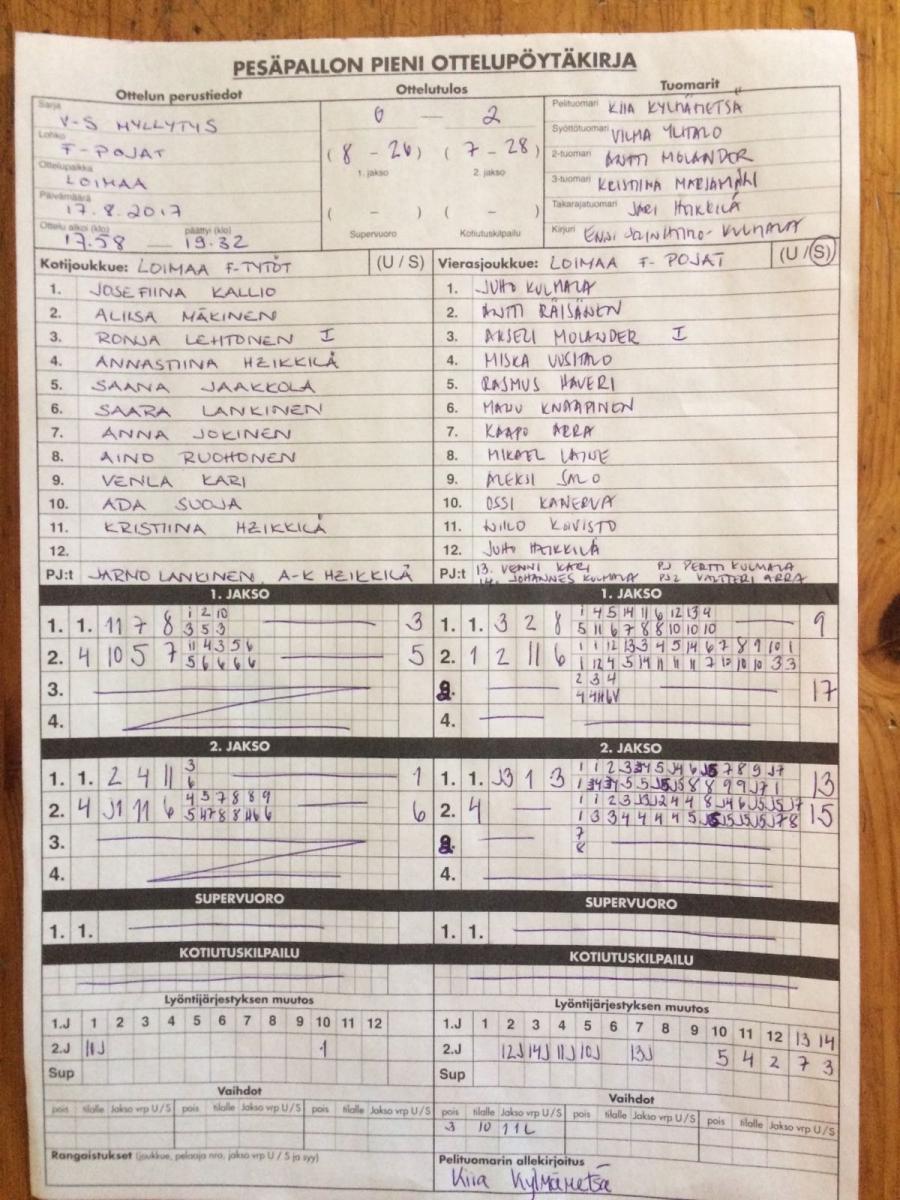 PESÄPALLON PIENI OTTELUPÖYTÄKIRJA
Ottelun perustiedot
Sarja
V-S MYLLYTYS
Lohko
F-POJAT
Ottelupaikka
LOIMAA
Päivämäärä
17.8.2017
Ottelu alkoi (klo) päättyi (klo)
17.58 — 19.32
Ottelutulos
0 — 2
(8 - 26) (7 - 28)
1. jakso 2. jakso
( - ) ( - )
Supervuoro Kotiutuskilpailu
Tuomarit
Pelituomari KIIA KYLMÄMETSÄ
Syöttötuomari VILMA YLITALO
2-tuomari ANTTI MOLANDER
3-tuomari KRISTIINA MARJAMÄKI
Takarajatuomari JARI HEIKKILÄ
Kirjuri
Kotijoukkue: LOIMAA F-TYTÖT (U / S)
1. JOSEFIINA KALLIO
2. ALIISA MÄKINEN
3. RONJA LEHTONEN I
4. ANNASTIINA HEIKKILÄ
5. SAANA JAAKKOLA
6. SAARA LANKINEN
7. ANNA JOKINEN
8. AINO RUOHONEN
9. VENLA KARI
10. ADA SUOJA
11. KRISTIINA HEIKKILÄ
12.
PJ:t JARNO LANKINEN, A-K HEIKKILÄ
Vierasjoukkue: LOIMAA F-POJAT (U / S)
1. JUHO KULMALA
2. ANTTI RÄISÄNEN
3. AKSELI MOLANDER I
4. MISKA UUSITALO
5. RASMUS HAVERI
6. MANU KNAAPINEN
7. KAAPO ARRA
8. MIKAEL LAINE
9. ALEKSI SALO
10. OSSI KANERVA
11. NIILO KOIVISTO
12. JUHO HEIKKILÄ
PJ:t 13. VENNI KARI PJ PERTTI KULMALA
14. JOHANNES KULMALA PJ2 VALTTERI ARRA
1. JAKSO
1. 1. 11 7 8 1 2 10 3
3 5 3
2. 4 10 5 7 11 4 3 5 6 5
5 6 6 6 6
3.
4.
1. JAKSO
1. 1. 3 2 8 1 4 5 14 11 6 12 13 9 9
5 11 6 7 8 8 10 10 10
2. 1 2 11 6 1 1 12 13 3 4 5 14 6 7 8 9 10 1
1 12 4 5 14 11 11 11 7 12 10 10 3 3
2 3 4 17
4.
2. JAKSO
1. 1. 2 4 11 3 1
6
2. 4 J1 11 6 4 5 7 8 8 9 6
3.
4.
2. JAKSO
1. 1. J3 1 3 13
2. 4 15
7
8
4.
SUPERVUORO
1. 1.
SUPERVUORO
1. 1.
KOTIUTUSKILPAILU
KOTIUTUSKILPAILU
Lyöntijärjestyksen muutos
1.J 1 2 3 4 5 6 7 8 9 10 11 12
2.J 11J 1
Sup
Lyöntijärjestyksen muutos
1.J 1 2 3 4 5 6 7 8 9 10 11 12 13 14
2.J 12J 14J 11J 10J 13J 5 4 2 7 3
Sup
Vaihdot
pois tilalle Jakso vrp U / S pois tilalle Jakso vrp U / S pois tilalle Jakso vrp U / S
Vaihdot
pois tilalle Jakso vrp U / S pois tilalle Jakso vrp U / S pois tilalle Jakso vrp U / S
3 10 1 1 L
Rangaistukset (joukkue, pelaaja nro, jakso vrp U / S ja syy)
Pelituomarin allekirjoitus
Kiia Kylmämetsä